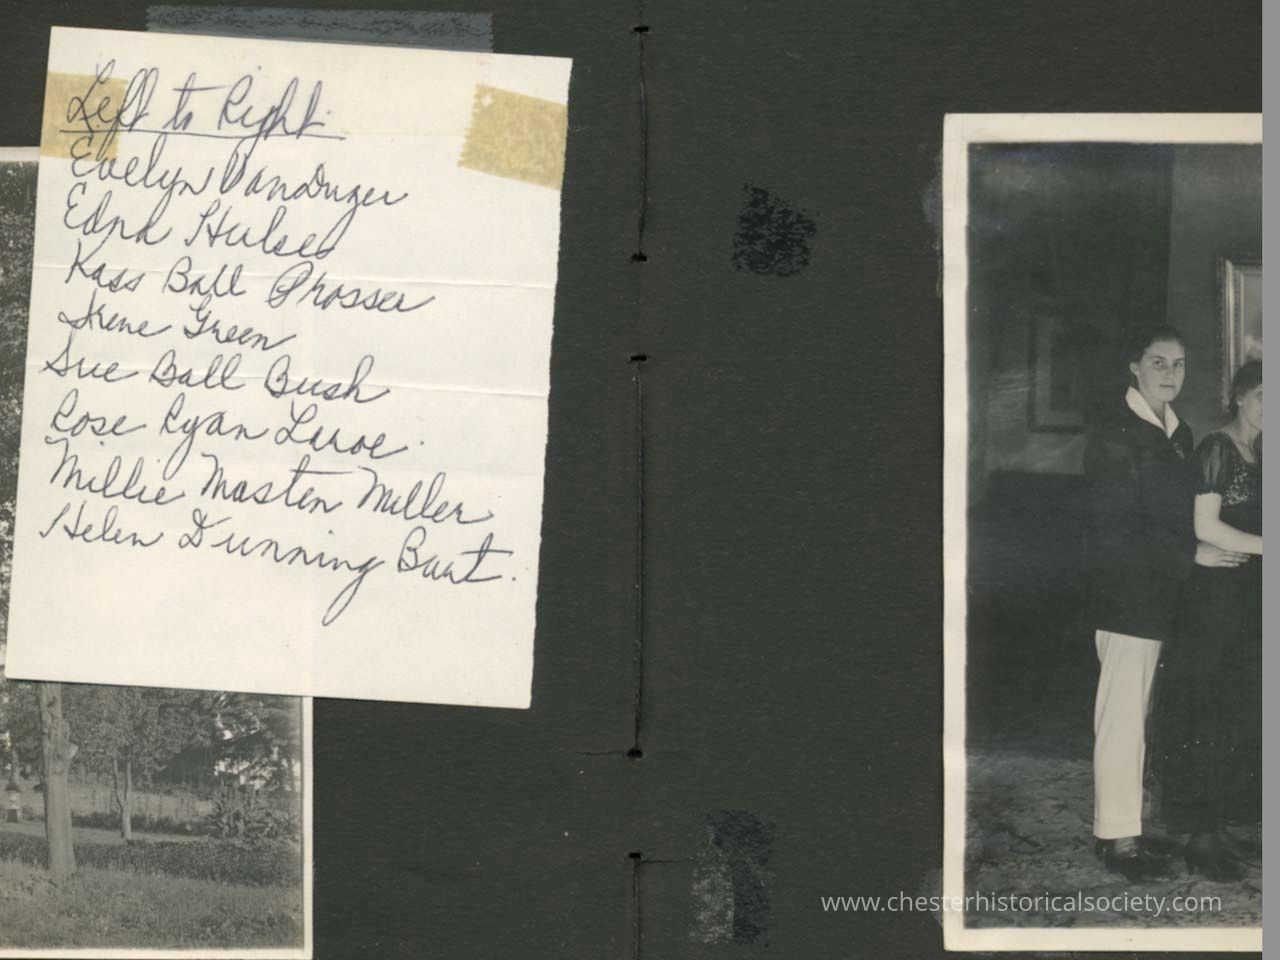 Left to Right
Evelyn VanDuzer
Edna Hulse
Kass Ball Prosser
Irene Green
Sue Ball Bush
Rose Ryan Laroe
Millie Masten Miller
Helen Dunning Burt.
www.chesterhistoricalsociety.com